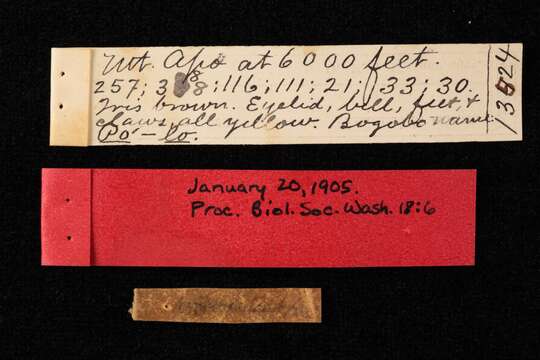 Mt. Apo at 6000 feet.
257; 388; 116; 111; 21; 33; 30.
Iris brown. Eyelid, bill, feet, &
claws, all yellow. Bogobo name
Po'-lo.
13624
January 20, 1905.
Proc. Biol. Soc. Wash. 18:6